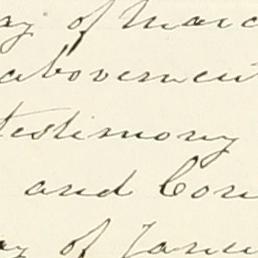 ay of Marc
abovemen
testimony
and Con
ay of Janu